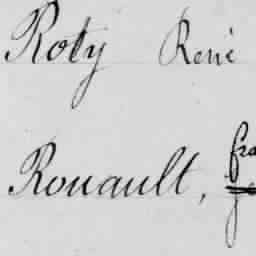 Roty René
Rouault, fra